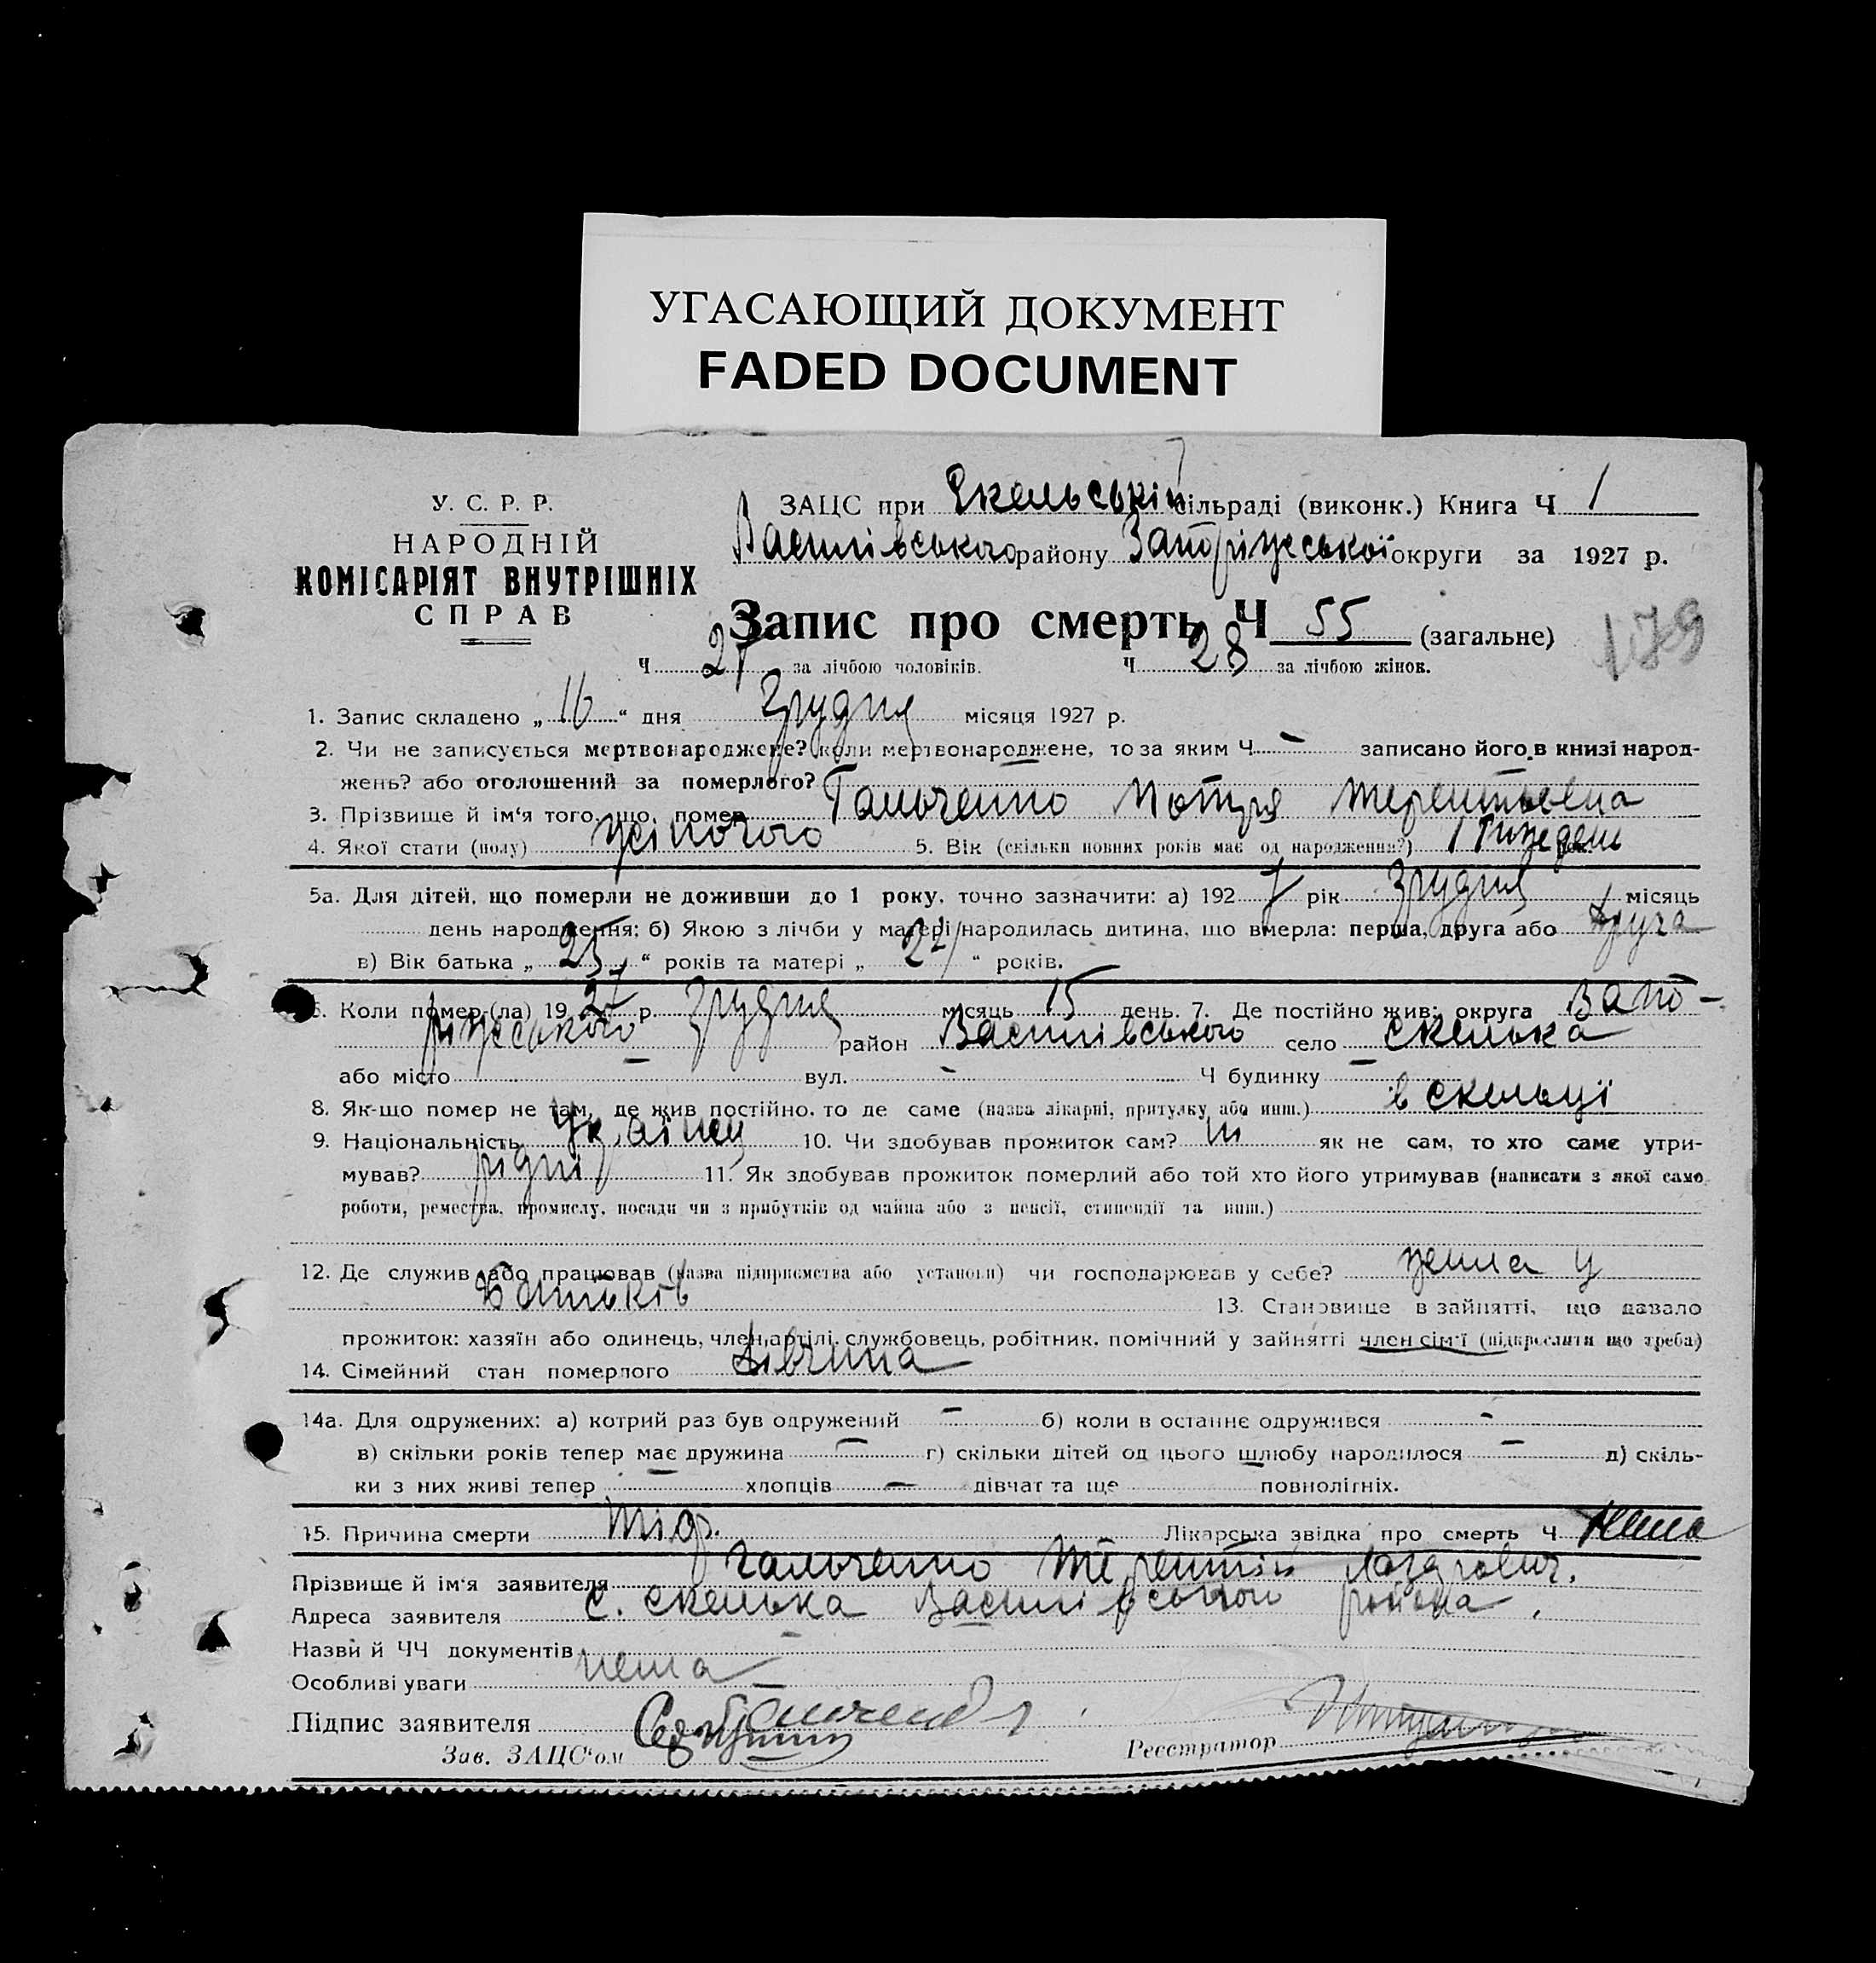 УГАСАЮЩИЙ ДОКУМЕНТ
FADED DOCUMENT
У. С. Р. Р.
НАРОДНІЙ
КОМІСАРІЯТ ВНУТРІШНІХ
СПРАВ
ЗАЦС при Скельській сільраді (виконк.) Книга Ч 1
Василівського району Запоріжської округи за 1927 р.
Запис про смерть Ч 55 (загальне)
179
Ч 27 за лічбою чоловіків. Ч 28 за лічбою жінок.
1. Запис складено „ 16 “ дня Грудня місяця 1927 р.
2. Чи не записується мертвонароджене? коли мертвонароджене, то за яким Ч - записано його в книзі народ-
жень? або оголошений за померлого?
3. Прізвище й ім'я того, що помер Гальченко Мотря Терентьевна
4. Якої стати (полу) жіночого 5. Вік (скільки повних років має од народження?) 1 Тиждень
5а. Для дітей, що померли не доживши до 1 року, точно зазначити: а) 192 7 рік Грудня місяць
день народження; б) Якою з лічби у матері народилась дитина, що вмерла: перша, друга або друга
в) Вік батька „ 25 “ років та матері „ 24 “ років.
6. Коли помер-(ла) 19 27 р. Грудня місяць 15 день. 7. Де постійно жив: округа Запо-
ріжського район Василівського село Скелька
або місто - вул. - Ч будинку -
8. Як-що помер не там, де жив постійно, то де саме (назва лікарні, притулку або инш.) в Скельці
9. Національність Українец 10. Чи здобував прожиток сам? ні як не сам, то хто саме утри-
мував? рідні 11. Як здобував прожиток померлий або той хто його утримував (написати з якої само
роботи, ремества, промислу, посади чи з прибутків од майна або з пенсії, стипендії та инш.)
12. Де служив або працював (назва підприємства або установи) чи господарював у себе? жила у
Батьків 13. Становище в зайнятті, що давало
прожиток: хазяїн або одинець, член артілі, службовець, робітник, помічний у зайнятті член сім'ї (підкреслити що треба)
14. Сімейний стан померлого дівчина
14а. Для одружених: а) котрий раз був одружений - б) коли в останнє одружився -
в) скільки років тепер має дружина - г) скільки дітей од цього шлюбу народилося - д) скіль-
ки з них живі тепер - хлопців - дівчат та ще повнолітніх.
15. Причина смерти Лікарська звідка про смерть Ч Нема
Прізвище й ім'я заявителя Гальченко Терентій
Адреса заявителя с. Скелька Василівського района.
Назви й ЧЧ документів -
Особливі уваги нема -
Підпис заявителя
Зав. ЗАЦС'ом Реєстратор